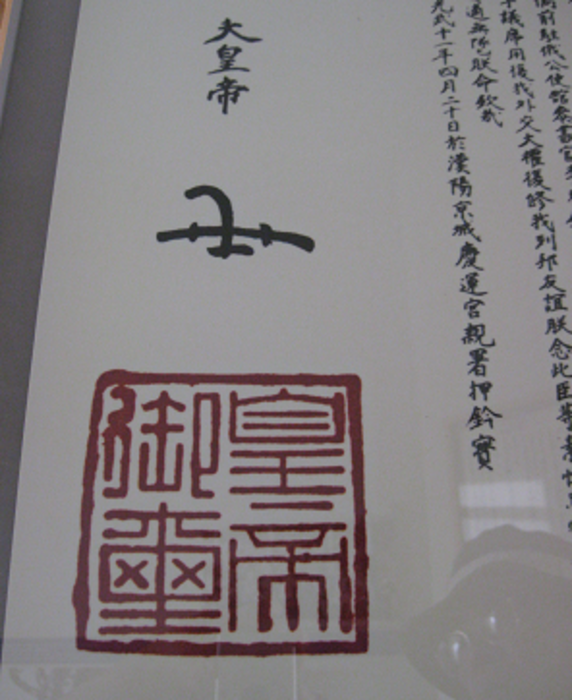 前駐俄公使館參書官李
議席用復我外交大權復修我列邦友誼朕念此臣等素性
適無隕朕命欽哉
光武十一年四月二十日於漢陽京城慶運宮親署押鈐寶
大皇帝
皇帝
御璽